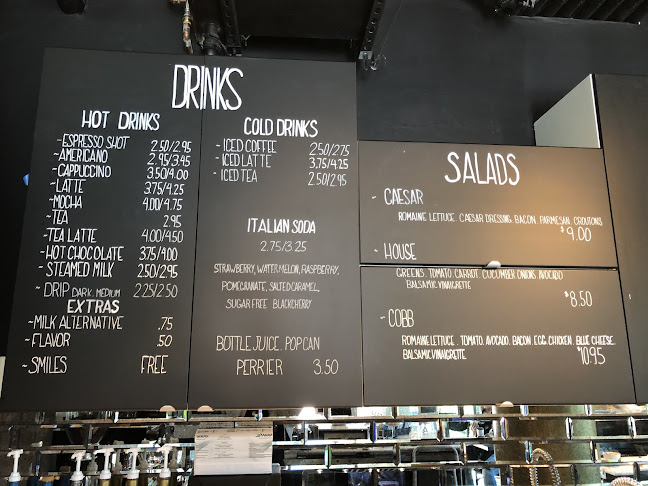 DRINKS
HOT DRINKS
~ESPRESSO SHOT 2.50/2.95
~AMERICANO 2.95/3.45
~CAPPUCCINO 3.50/4.00
~LATTE 3.75/4.25
~MOCHA 4.00/4.75
~TEA 2.95
~TEA LATTE 4.00/4.50
~HOT CHOCOLATE 3.75/4.00
~STEAMED MILK 2.50/2.95
~DRIP DARK. MEDIUM 2.25/2.50
EXTRAS
~MILK ALTERNATIVE .75
~FLAVOR .50
~SMILES FREE
COLD DRINKS
- ICED COFFEE 2.50/2.75
- ICED LATTE 3.75/4.25
- ICED TEA 2.50/2.95
ITALIAN SODA
2.75/3.25
STRAWBERRY, WATERMELON, RASPBERRY,
POMEGRANATE, SALTED CARAMEL,
SUGAR FREE BLACKCHERRY
BOTTLE JUICE. POP CAN
PERRIER 3.50
SALADS
- CAESAR
ROMAINE LETTUCE. CAESAR DRESSING. BACON. PARMESAN. CROUTONS.
$9.00
- HOUSE
GREENS. TOMATO. CARROT. CUCUMBER. ONIONS. AVOCADO.
BALSAMIC VINAIGRETTE
$8.50
- COBB
ROMAINE LETTUCE. TOMATO. AVOCADO. BACON. EGG. CHICKEN. BLUE CHEESE.
BALSAMIC VINAIGRETTE $10.95